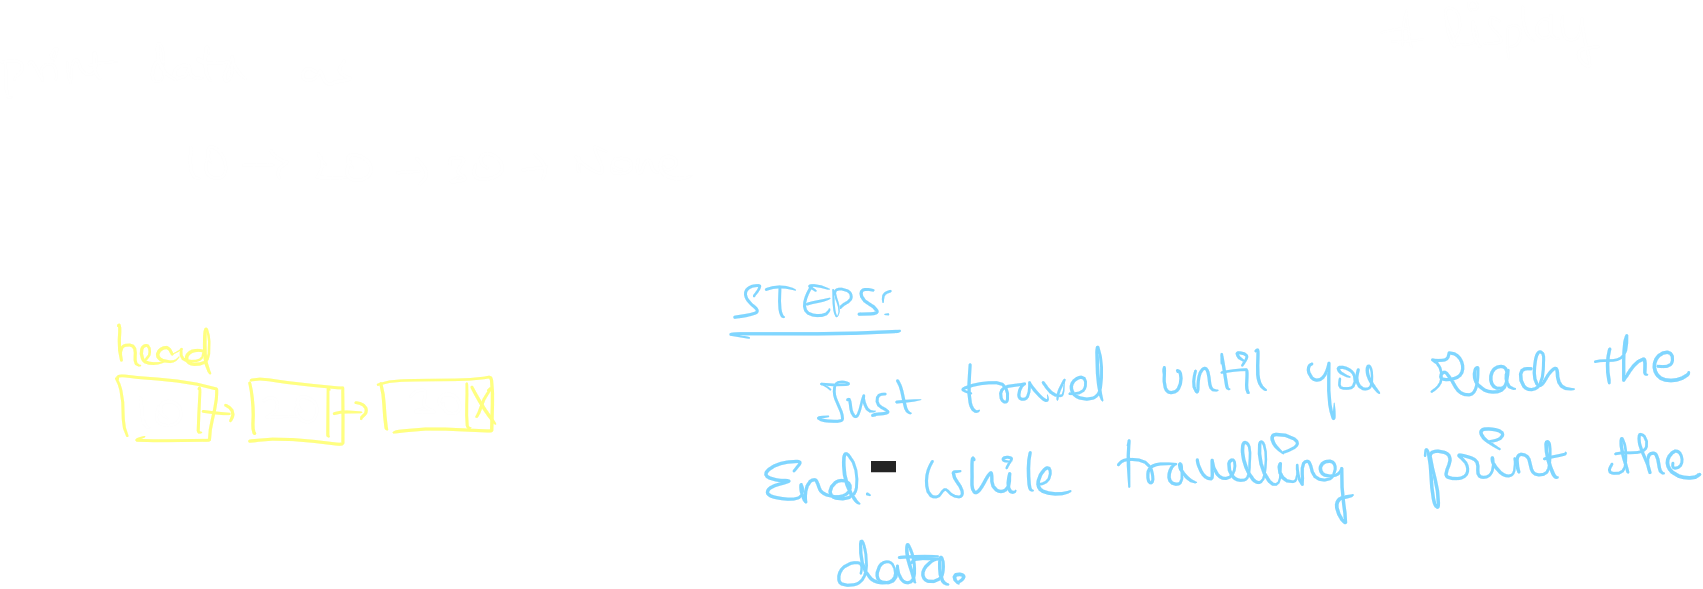 STEPS:
head
Just travel until you Reach the
End. while travelling print the
data.